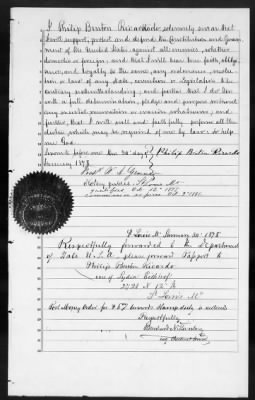 I Philip Benton Ricardo do solemnly swear that
I will support, protect and defend the Constitution and Govern-
ment of the United States against all enemies, whether
domestic or foreign; and that I will bear true faith, allegi-
ance, and loyalty to the same, any ordinance, resolu-
tion or law of any State, Convention or Legislature to the
contrary notwithstanding; and further that I do this
with a full determination, pledge and purpose without
any mental reservation or evasion whatsoever; and
further, that I will well and faithfully perform all the
duties which may be required of me by law: So help
me God.
Sworn to before me this day Philip Benton Ricardo
January 1878
Notary public, St Louis Mo
St Louis Mo January 24 1878
Respectfully forwarded to the Department
of State U.S.A. please forward Passport to
Philip Benton Ricardo
care of Lydia
St Louis Mo
Post Money Order for $5
Respectfully